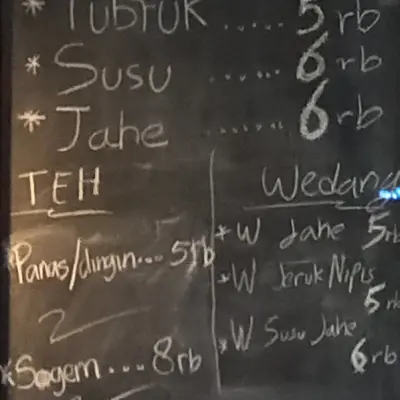 * Tubruk ..... 5 rb
* Susu ...... 6 rb
* Jahe ....... 6 rb
TEH
Panas/dingin... 5rb
* Sogem ... 8rb
Wedang
* W Jahe 5rb
* W Jeruk Nipis
5 rb
* W Susu Jahe
6 rb